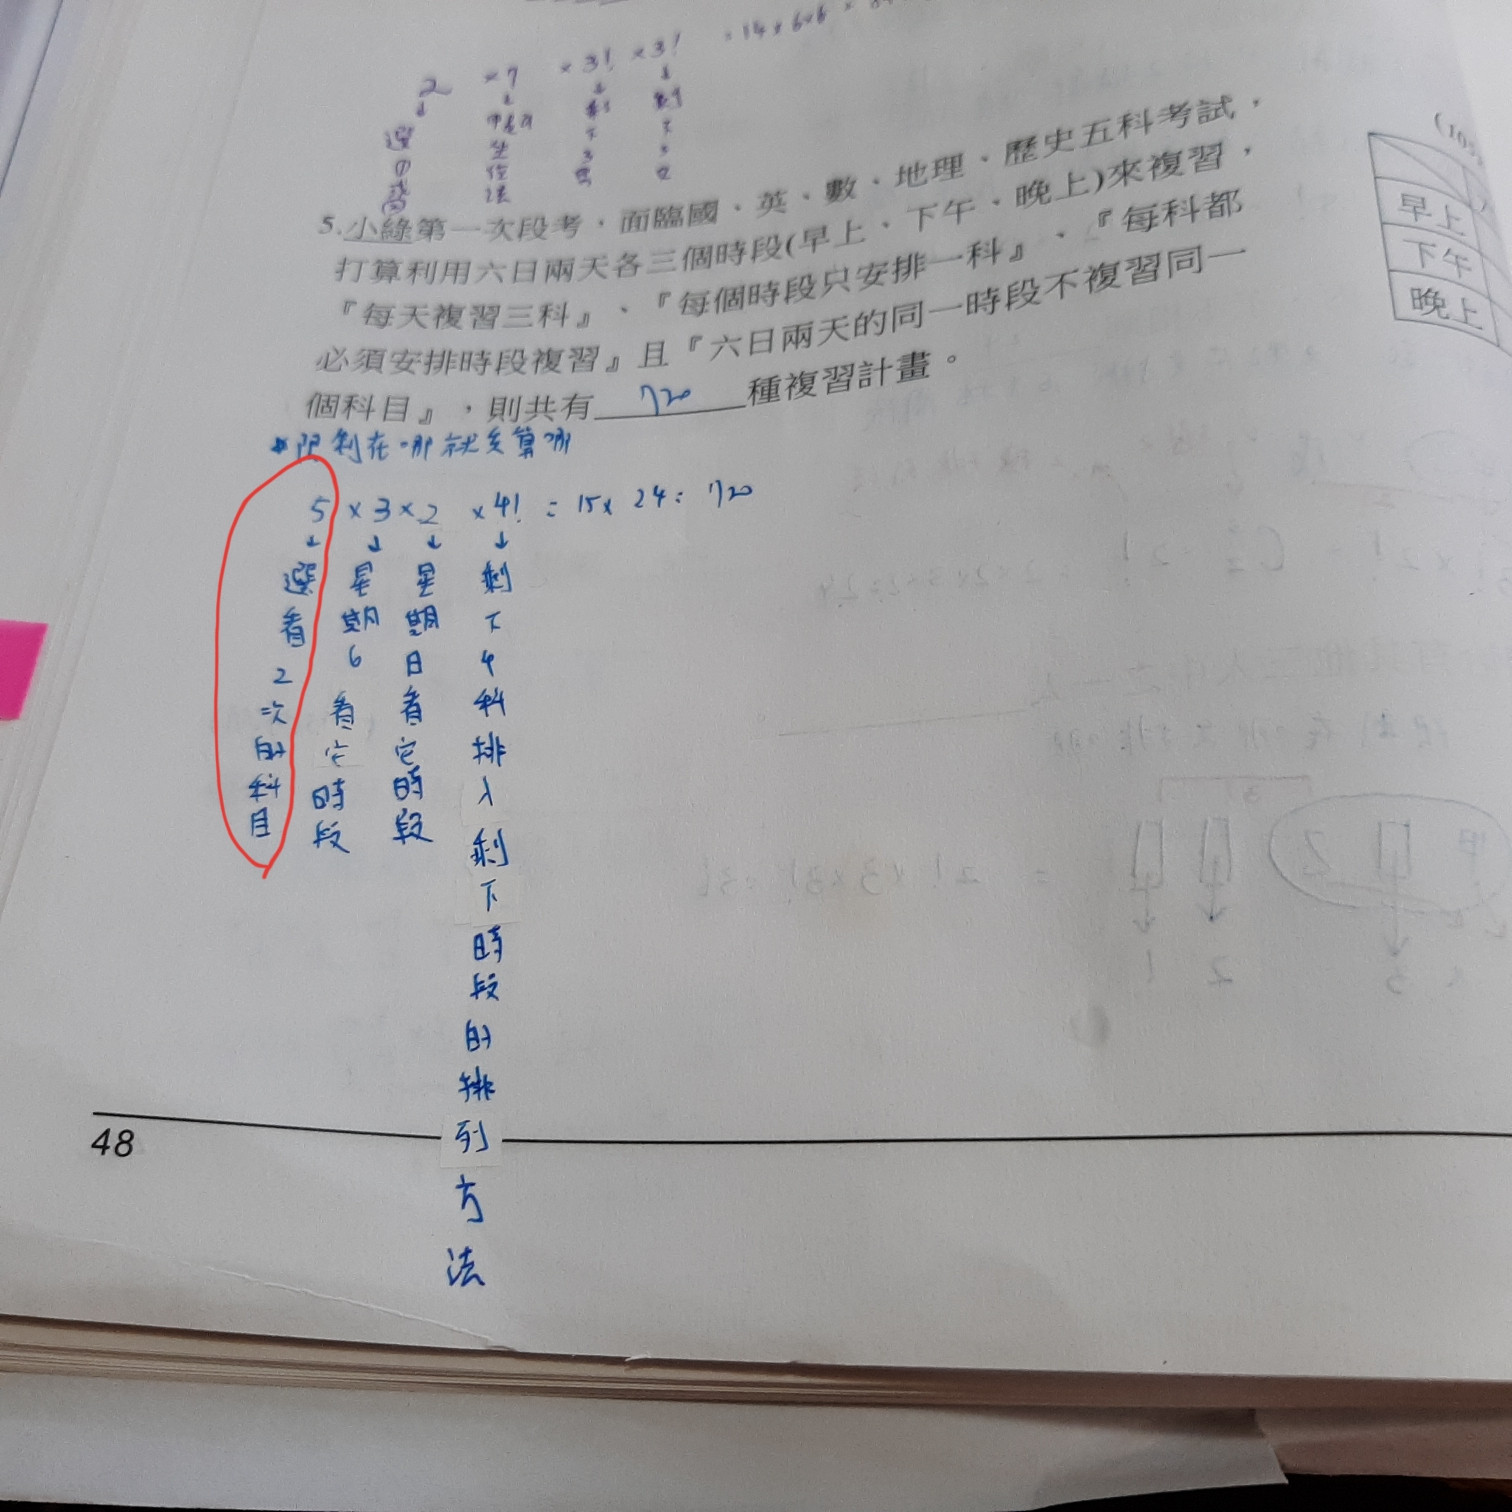 2 × 7 × 3! × 3! = 14 × 6×6 ×
5.小綠第一次段考,面臨國、英、數、地理、歷史五科考試,
打算利用六日兩天各三個時段(早上、下午、晚上)來複習,
『每天複習三科』、『每個時段只安排一科』、『每科都
必須安排時段複習』且『六日兩天的同一時段不複習同一
個科目』,則共有 720 種複習計畫。
(10
早上
下午
晚上
限制在哪就先算哪
5 × 3 × 2 × 4! = 15 × 24 = 720
選看2次的科目
星期6看它時段
星期日看它時段
剩下4科排入剩下時段的排列方法
48